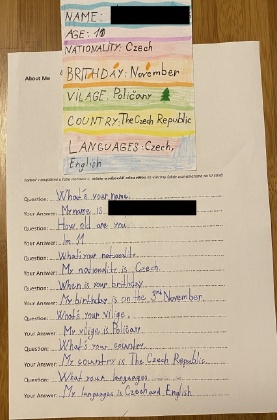 NAME:
AGE: 11
NATIONALITY: Czech
BIRTHDAY: November
VILAGE: Poličany
COUNTRY: The Czech Republic
LANGUAGES: Czech,
English
About Me
Question: What's your name.
Your Answer: My name is
Question: How old are you.
Your Answer: Im 11
Question: What's your nationalite.
Your Answer: My nationality is Czech.
Question: When is your birthday.
Your Answer: My birthday is on the 3rd November.
Question: What's your village.
Your Answer: My vlige is Poličany.
Question: What's your country.
Your Answer: My country is The Czech Republic
Question: What your languages
Your Answer: My languages is Czech and English